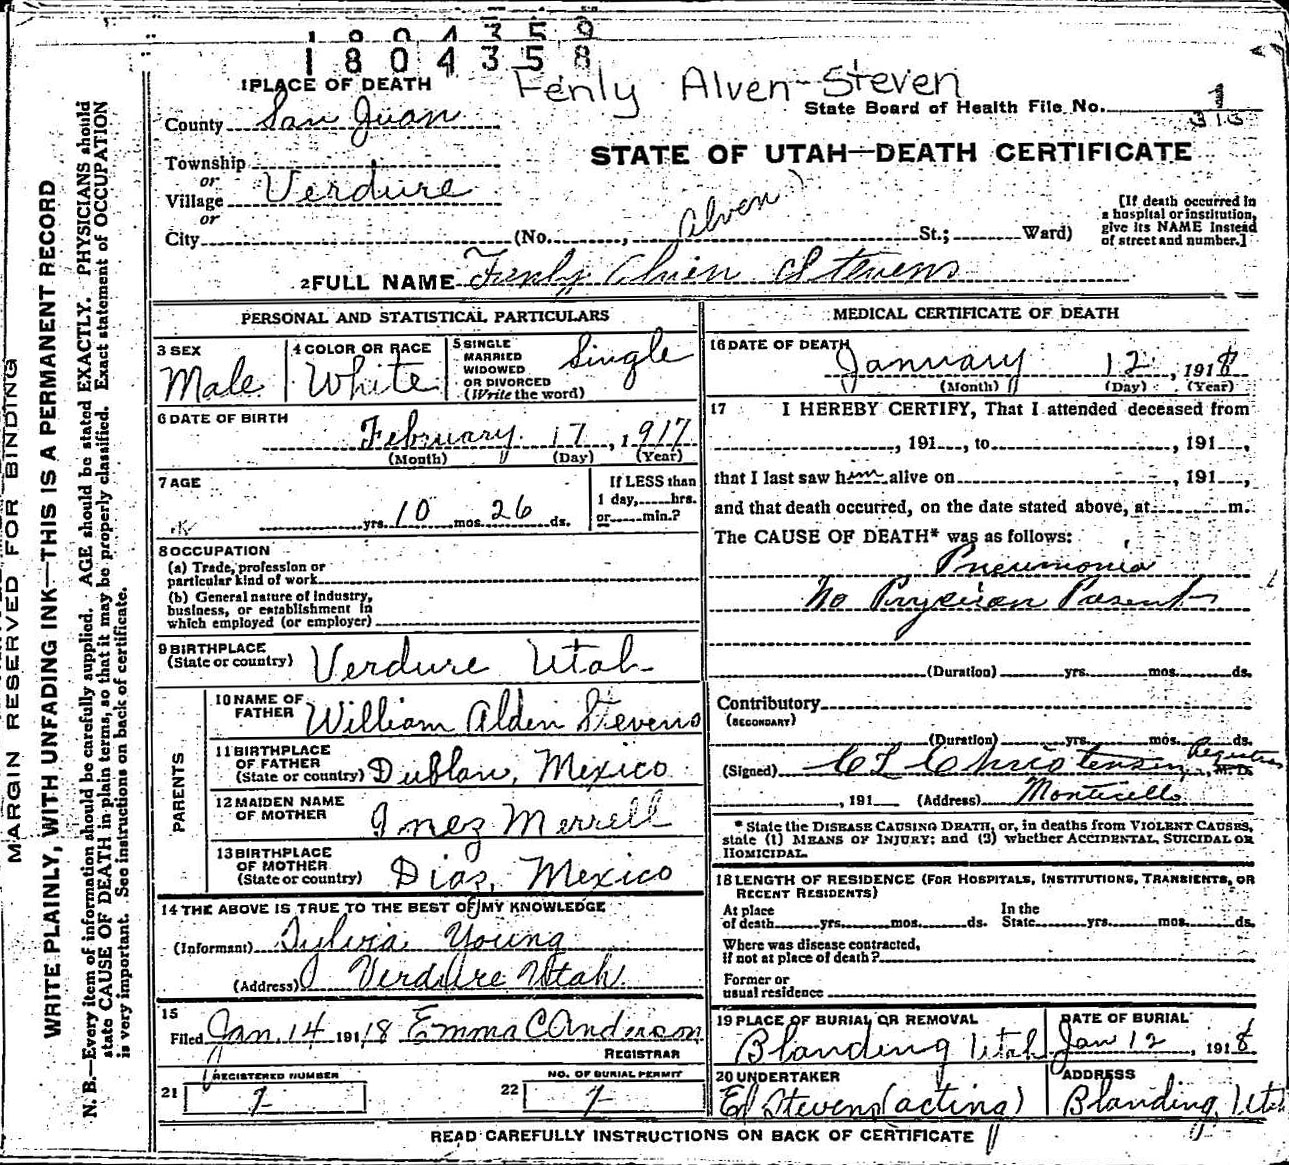 1 8 0 4 3 5 9
1 8 0 4 3 5 8
Fenly Alven Steven
1 PLACE OF DEATH
State Board of Health File No. 1
313
County San Juan
STATE OF UTAH—DEATH CERTIFICATE
Township
or
Village Verdure
or
City (No. , Alven St.; Ward)
[If death occurred in
a hospital or institution,
give its NAME instead
of street and number.]
2 FULL NAME Fenly Alvien Stevens
PERSONAL AND STATISTICAL PARTICULARS
3 SEX Male
4 COLOR OR RACE White
5 SINGLE
MARRIED
WIDOWED
OR DIVORCED
(Write the word) Single
6 DATE OF BIRTH
February 17, 1917
(Month) (Day) (Year)
7 AGE
yrs. 10 mos. 26 ds.
If LESS than
1 day, hrs.
or min.?
8 OCCUPATION
(a) Trade, profession or
particular kind of work
(b) General nature of industry,
business, or establishment in
which employed (or employer)
9 BIRTHPLACE
(State or country) Verdure Utah
PARENTS
10 NAME OF
FATHER William Alden Stevens
11 BIRTHPLACE
OF FATHER
(State or country) Dublan, Mexico
12 MAIDEN NAME
OF MOTHER Inez Merrell
13 BIRTHPLACE
OF MOTHER
(State or country) Dias, Mexico
14 THE ABOVE IS TRUE TO THE BEST OF MY KNOWLEDGE
(Informant) Sylvia Young
(Address) Verdure Utah
15
Filed Jan. 14 1918 Emma C Anderson
REGISTRAR
REGISTERED NUMBER
21 1
NO. OF BURIAL PERMIT
22 1
MEDICAL CERTIFICATE OF DEATH
16 DATE OF DEATH
January 12, 1918
(Month) (Day) (Year)
17 I HEREBY CERTIFY, That I attended deceased from
, 191 , to , 191 ,
that I last saw him alive on , 191 ,
and that death occurred, on the date stated above, at m.
The CAUSE OF DEATH* was as follows:
Pneumonia
No Physician Present
(Duration) yrs. mos. ds.
Contributory
(SECONDARY)
(Duration) yrs. mos. ds.
(Signed) C L Christensen Registrar, M. D.
, 191 (Address) Monticello
* State the DISEASE CAUSING DEATH, or, in deaths from VIOLENT CAUSES,
state (1) MEANS OF INJURY; and (2) whether ACCIDENTAL, SUICIDAL OR
HOMICIDAL.
18 LENGTH OF RESIDENCE (FOR HOSPITALS, INSTITUTIONS, TRANSIENTS, OR
RECENT RESIDENTS)
At place
of death yrs. mos. ds.
In the
State yrs. mos. ds.
Where was disease contracted,
if not at place of death?
Former or
usual residence
19 PLACE OF BURIAL OR REMOVAL
Blanding Utah
DATE OF BURIAL
Jan 12, 1918
20 UNDERTAKER
Ed Stevens (acting)
ADDRESS
Blanding, Utah
READ CAREFULLY INSTRUCTIONS ON BACK OF CERTIFICATE
MARGIN RESERVED FOR BINDING
WRITE PLAINLY, WITH UNFADING INK—THIS IS A PERMANENT RECORD
N. B.—Every item of information should be carefully supplied. AGE should be stated EXACTLY. PHYSICIANS should
state CAUSE OF DEATH in plain terms, so that it may be properly classified. Exact statement of OCCUPATION
is very important. See instructions on back of certificate.